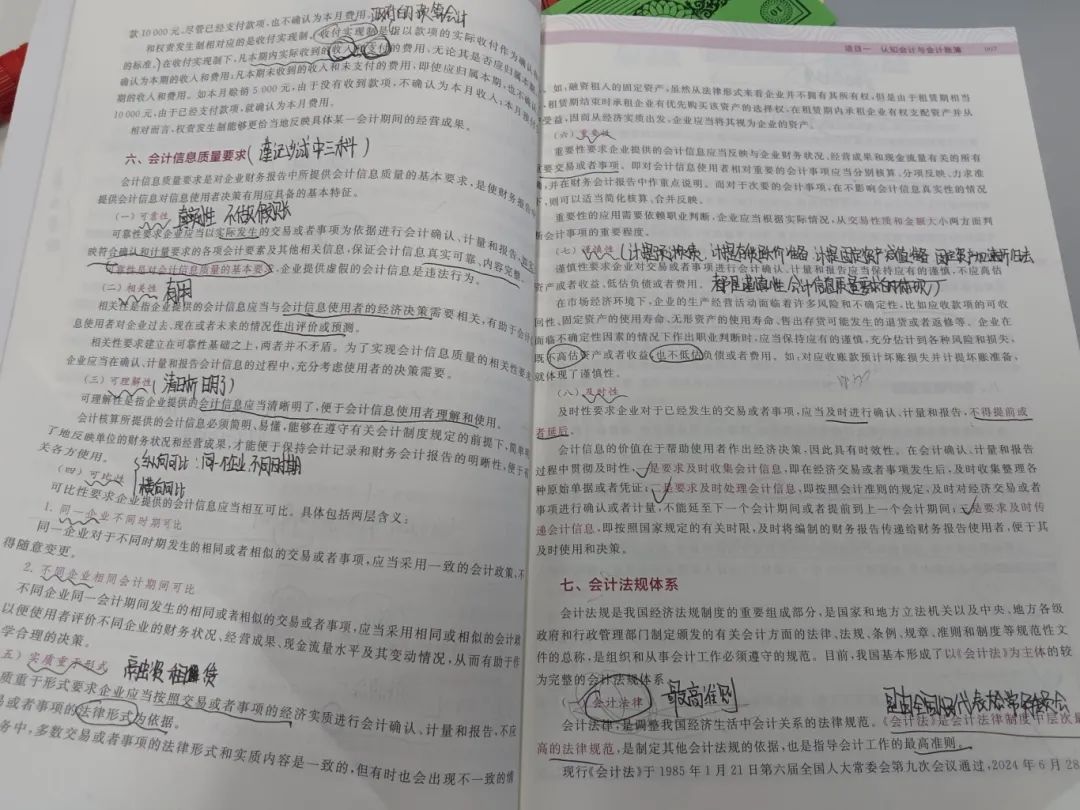 款10 000元,尽管已经支付款项,也不确认为本月费用。
政府的决算会计
和权责发生制相对应的是收付实现制。收付实现制是指以款项的实际收付作为确认
的标准。在收付实现制下,凡本期内实际收到的收入和支付的费用,无论其是否应归属本期
确认为本期的收入和费用;凡本期未收到的收入和未支付的费用,即使应归属本期,也不确认
期的收入和费用。如本月赊销5 000元,由于没有收到款项,不确认为本月收入;本月预付
10 000元,由于已经支付款项,就确认为本月费用。
相对而言,权责发生制能够更恰当地反映具体某一会计期间的经营成果。
六、会计信息质量要求
会计信息质量要求是对企业财务报告中所提供会计信息质量的基本要求,是使财务报告
提供会计信息对信息使用者决策有用应具备的基本特征。
(一) 可靠性 真实性 不做假账
可靠性要求企业应当以实际发生的交易或者事项为依据进行会计确认、计量和报告,
映符合确认和计量要求的各项会计要素及其他相关信息,保证会计信息真实可靠、内容完整。
可靠性是对会计信息质量的基本要求,企业提供虚假的会计信息是违法行为。
(二) 相关性 有用
相关性是指企业提供的会计信息应当与会计信息使用者的经济决策需要相关,有助于会计
息使用者对企业过去、现在或者未来的情况作出评价或预测。
相关性要求建立在可靠性基础之上,两者并不矛盾。为了实现会计信息质量的相关性要求
企业应当在确认、计量和报告会计信息的过程中,充分考虑使用者的决策需要。
(三) 可理解性 (清晰明了)
可理解性是指企业提供的会计信息应当清晰明了,便于会计信息使用者理解和使用。
会计核算所提供的会计信息必须简明、易懂,能够在遵守有关会计制度规定的前提下,简单明
了地反映单位的财务状况和经营成果,才能便于保持会计记录和财务会计报告的明晰性,便于有
关各方使用。
纵向可比:同一企业不同时期
(四) 可比性
横向可比
可比性要求企业提供的会计信息应当相互可比。具体包括两层含义:
1. 同一企业不同时期可比
同一企业对于不同时期发生的相同或者相似的交易或者事项,应当采用一致的会计政策,不
得随意变更。
2. 不同企业相同会计期间可比
不同企业同一会计期间发生的相同或者相似的交易或者事项,应当采用相同或相似的会计政
以便使用者评价不同企业的财务状况、经营成果、现金流量水平及其变动情况,从而有助于作
学合理的决策。
五) 实质重于形式
质重于形式要求企业应当按照交易或者事项的经济实质进行会计确认、计量和报告,不应
易或者事项的法律形式为依据。
务中,多数交易或者事项的法律形式和实质内容是一致的,但有时也会出现不一致的情
项目一 认知会计与会计账簿 007
。如,融资租入的固定资产,虽然从法律形式来看企业并不拥有其所有权,但是由于租赁期相当
租赁期结束时承租企业有优先购买该资产的选择权,在租赁期内承租企业有权支配资产并从
受益,因而从经济实质出发,企业应当将其视为企业的资产。
(六) 重要性
重要性要求企业提供的会计信息应当反映与企业财务状况、经营成果和现金流量有关的所有
重要交易或者事项。即对会计信息使用者相对重要的会计事项应当分别核算、分项反映、力求准
,并在财务会计报告中作重点说明。而对于次要的会计事项,在不影响会计信息真实性的情况
下,则可以适当简化核算、合并反映。
重要性的应用需要依赖职业判断,企业应当根据实际情况,从交易性质和金额大小两方面判
断会计事项的重要程度。
(七) 谨慎性 (计提坏账准备、计提存货跌价准备、计提固定资产减值准备、固定资产加速折旧法
谨慎性要求企业对交易或者事项进行会计确认、计量和报告应当保持应有的谨慎,不应高估
都是谨慎性会计信息质量要求的体现)
资产或者收益、低估负债或者费用。
在市场经济环境下,企业的生产经营活动面临着许多风险和不确定性,比如应收款项的可收
回性、固定资产的使用寿命、无形资产的使用寿命、售出存货可能发生的退货或者返修等。企业在
面临不确定性因素的情况下作出职业判断时,应当保持应有的谨慎,充分估计到各种风险和损失,
既不高估资产或者收益,也不低估负债或者费用。如:对应收账款预计坏账损失并计提坏账准备,
就体现了谨慎性。
(八) 及时性
及时性要求企业对于已经发生的交易或者事项,应当及时进行确认、计量和报告,不得提前或
者延后。
会计信息的价值在于帮助使用者作出经济决策,因此具有时效性。在会计确认、计量和报告
过程中贯彻及时性,一是要求及时收集会计信息,即在经济交易或者事项发生后,及时收集整理各
种原始单据或者凭证;二是要求及时处理会计信息,即按照会计准则的规定,及时对经济交易或者
事项进行确认或者计量,不能延至下一个会计期间或者提前到上一个会计期间;三是要求及时传
递会计信息,即按照国家规定的有关时限,及时将编制的财务报告传递给财务报告使用者,便于其
及时使用和决策。
七、会计法规体系
会计法规是我国经济法规制度的重要组成部分,是国家和地方立法机关以及中央、地方各级
政府和行政管理部门制定颁发的有关会计方面的法律、法规、条例、规章、准则和制度等规范性文
件的总称,是组织和从事会计工作必须遵守的规范。目前,我国基本形成了以《会计法》为主体的较
为完整的会计法规体系。
(一) 会计法律 最高准则
会计法律,是调整我国经济生活中会计关系的法律规范。《会计法》是会计法律制度中层次最
高的法律规范,是制定其他会计法规的依据,也是指导会计工作的最高准则。
现行《会计法》于1985年1月21日第六届全国人大常委会第九次会议通过,2024年6月28